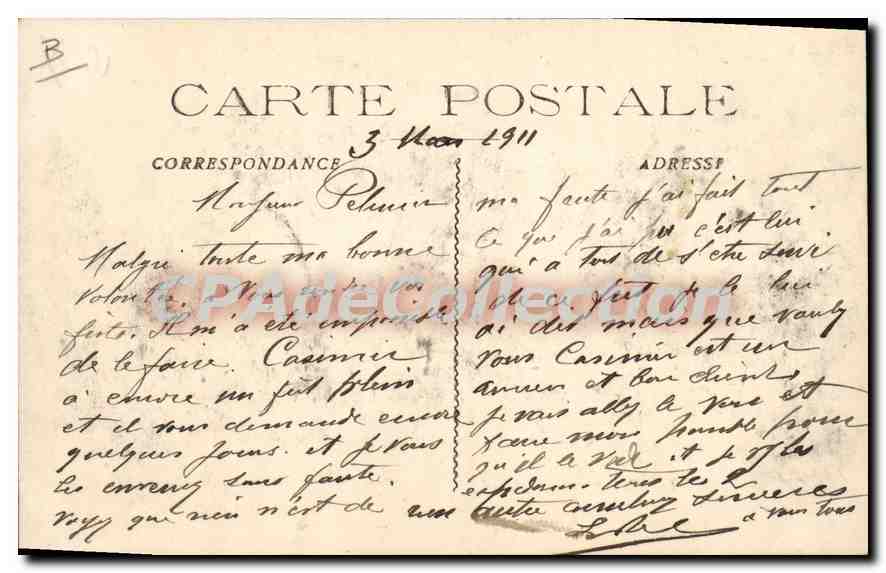 B
CARTE POSTALE
3 Mars 1911
CORRESPONDANCE
ADRESSE
Monsieur
Malgré toute ma bonne
volonté. a vous rendre vos
futs. Il m'a été impossible
de le faire. Casimir
a encore un fut plein
et il vous demande encore
quelques jours. et je vous
les enverrez sans faute.
voyez que rien n'est de
ma faute j'ai fait tout
ce que j'ai pu c'est lui
qui a tort de s'etre servi
de ce fut je le lui
ai dit mais que voulez
vous Casimir est un
ancien et bon client
je vais aller le voir et
faire mon possible pour
qu'il le vide et je
sinceres
a vous tous
CPAgeCollection